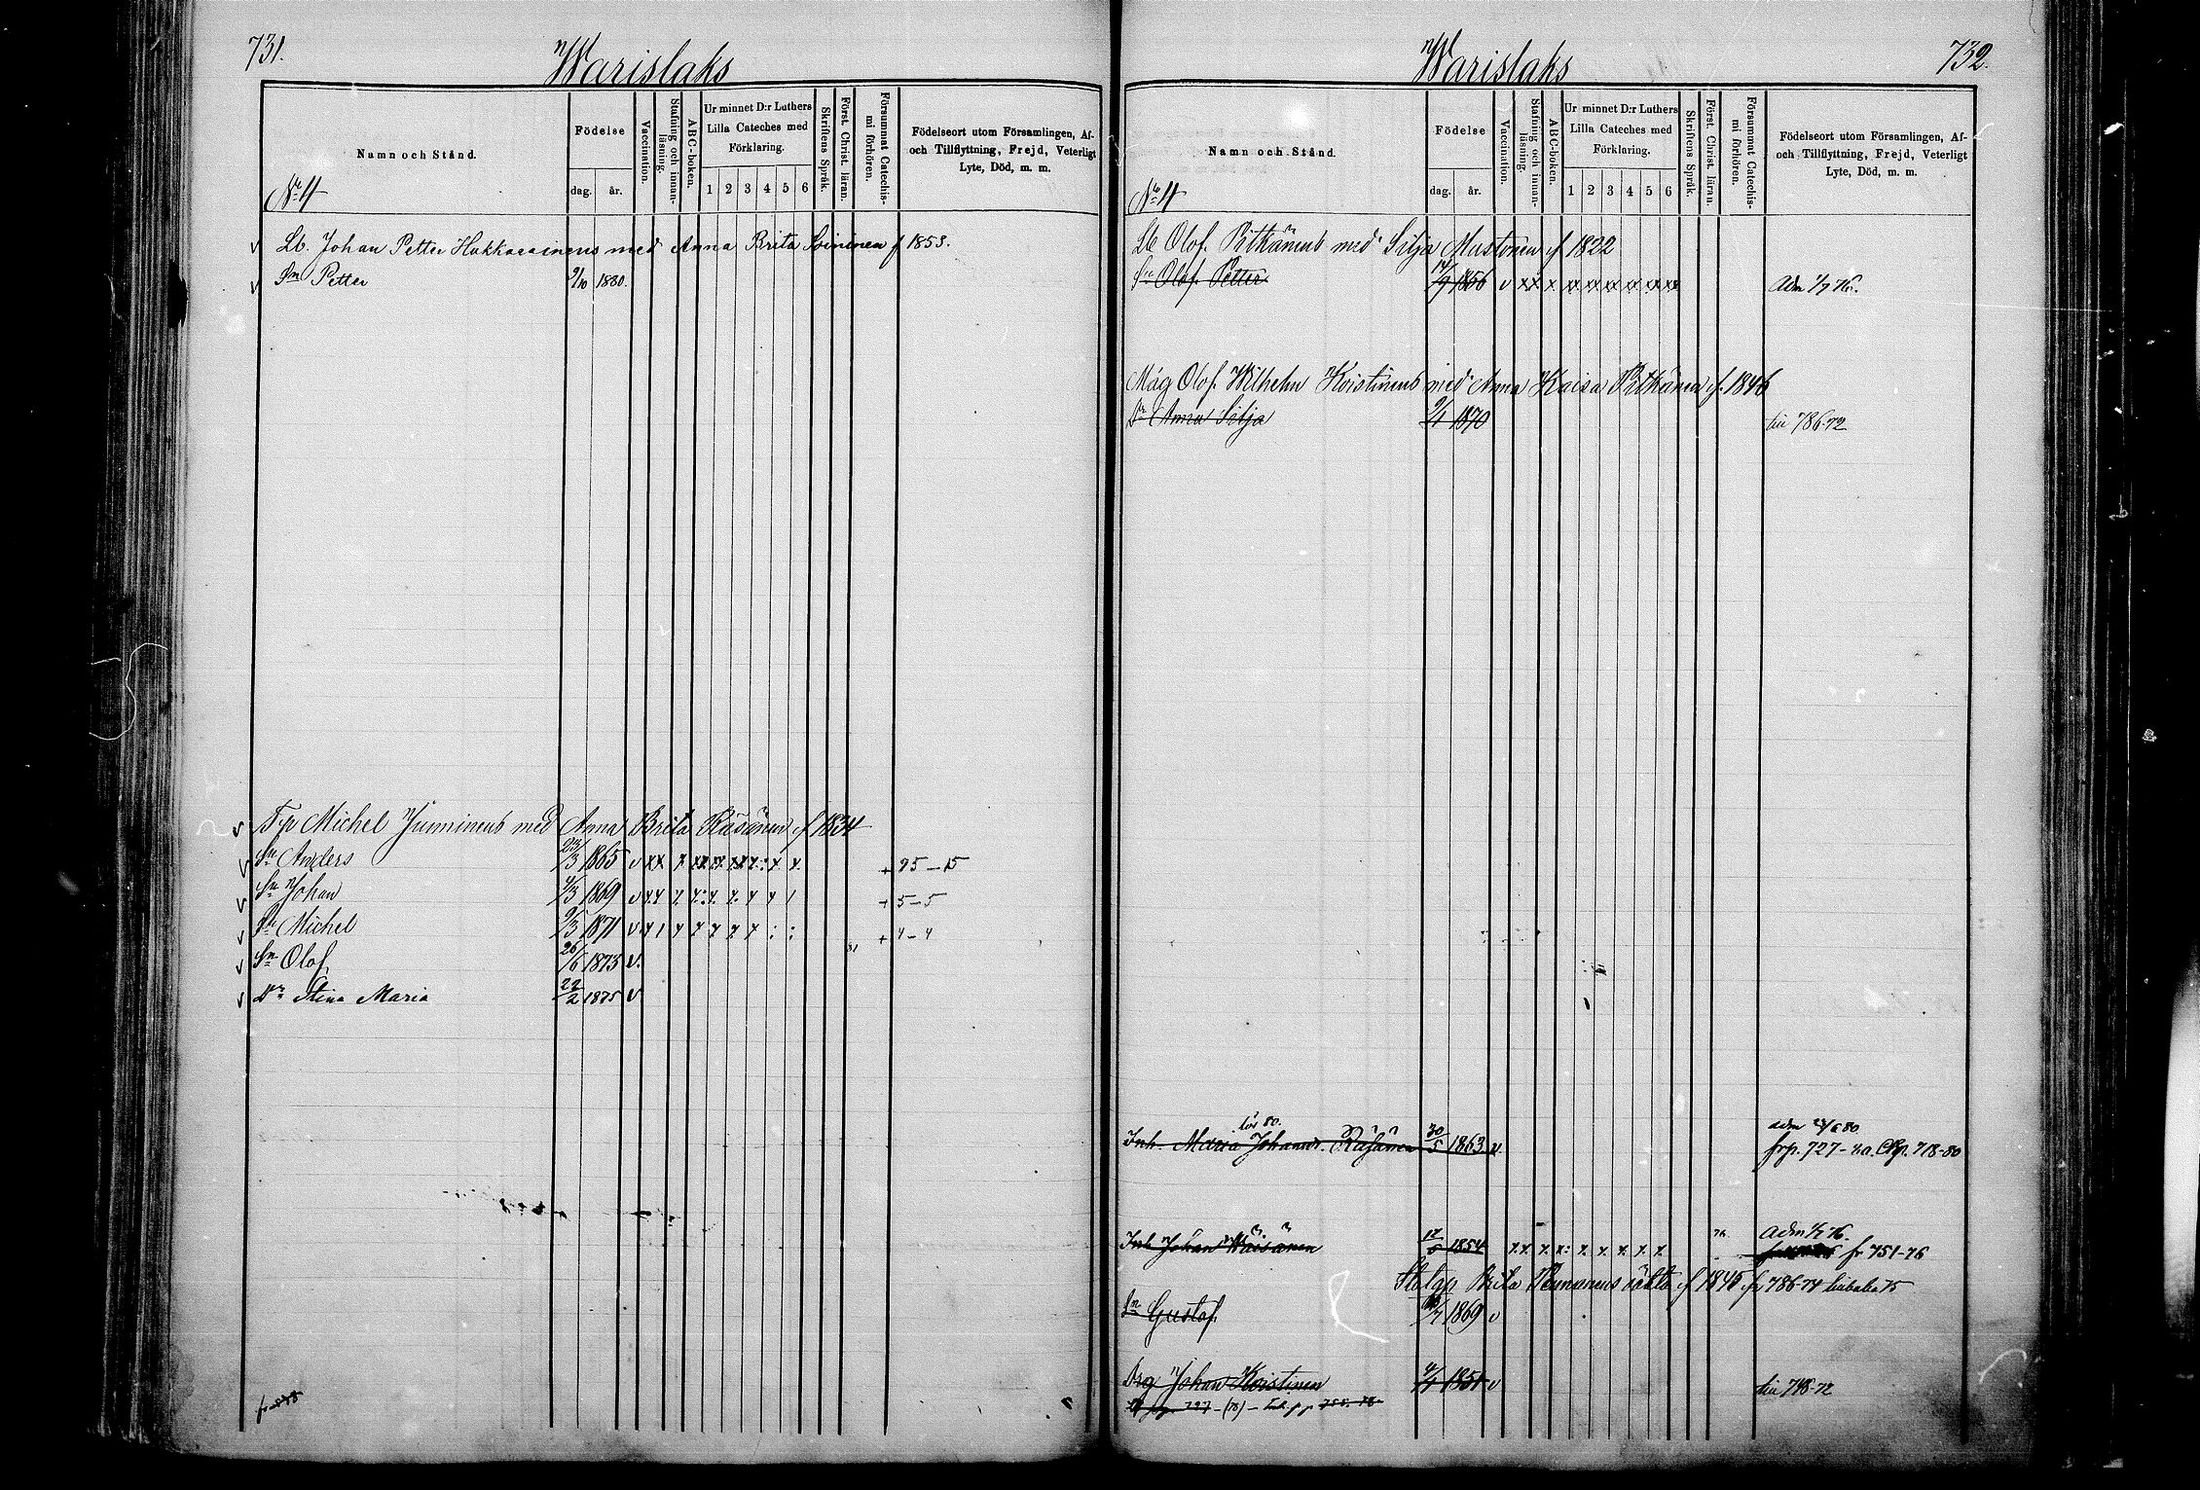 731.
Warislaks
Namn och Stånd.
Födelse
dag. år.
Vaccination.
Stafning och innan-läsning.
ABC-boken.
Ur minnet D:r Luthers
Lilla Cateches med
Förklaring.
1 2 3 4 5 6
Skriftens Språk.
Först. Christ. läran.
Försummat Catechis-mi förhören.
Födelseort utom Församlingen, Af-
och Tillflyttning, Frejd, Veterligt
Lyte, Död, m. m.
No 4
Lb. Johan Petter Hukkarainens med Anna Brita Soininen f 1853.
Sn Petter 9/10 1880.
Michel Junninens med Anna Brita Räsänen f 1834
Sn Anders 23/3 1865 v + 25-15
Sn Johan 4/3 1869 v + 5-5
Sn Michel 9/3 1871 v + 4-4
Sn Olof 26/6 1873 v.
Dr Stina Maria 22/2 1875 v
732.
Warislaks
Namn och Stånd.
Födelse
dag. år.
Vaccination.
Stafning och innan-läsning.
ABC-boken.
Ur minnet D:r Luthers
Lilla Cateches med
Förklaring.
1 2 3 4 5 6
Skriftens Språk.
Först. Christ. läran.
Försummat Catechis-mi förhören.
Födelseort utom Församlingen, Af-
och Tillflyttning, Frejd, Veterligt
Lyte, Död, m. m.
No 4
Lb Olof Pitkänens med Silja Mustonen f 1822
Sn Olof Petter 14/9 1856 v Adm 1/7 76.
Måg Olof Wilhelm Koistinens med Anna Kaisa Pitkänen f. 1846
Dr Anna Silja 9/1 1870 786-72
80. adm 80
Inh. Maria Johanna Räsänen 30/5 1863 v frp. 727 718-80
Inh Johan Wäisänen 1854 76 Adm 1/7 76.
fr 751-76
Brita f 1845 786-74
Sn Gustaf 1869 v
Drg Johan Koistinen 1851 v 748-72